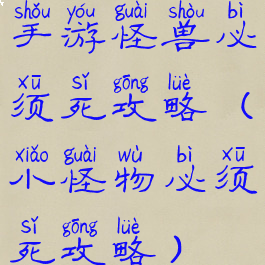 shǒu yóu guài shòu bì
手游怪兽必
xū sǐ gōng lüè
须死攻略（
xiǎo guài wù bì xū
小怪物必须
sǐ gōng lüè
死攻略）